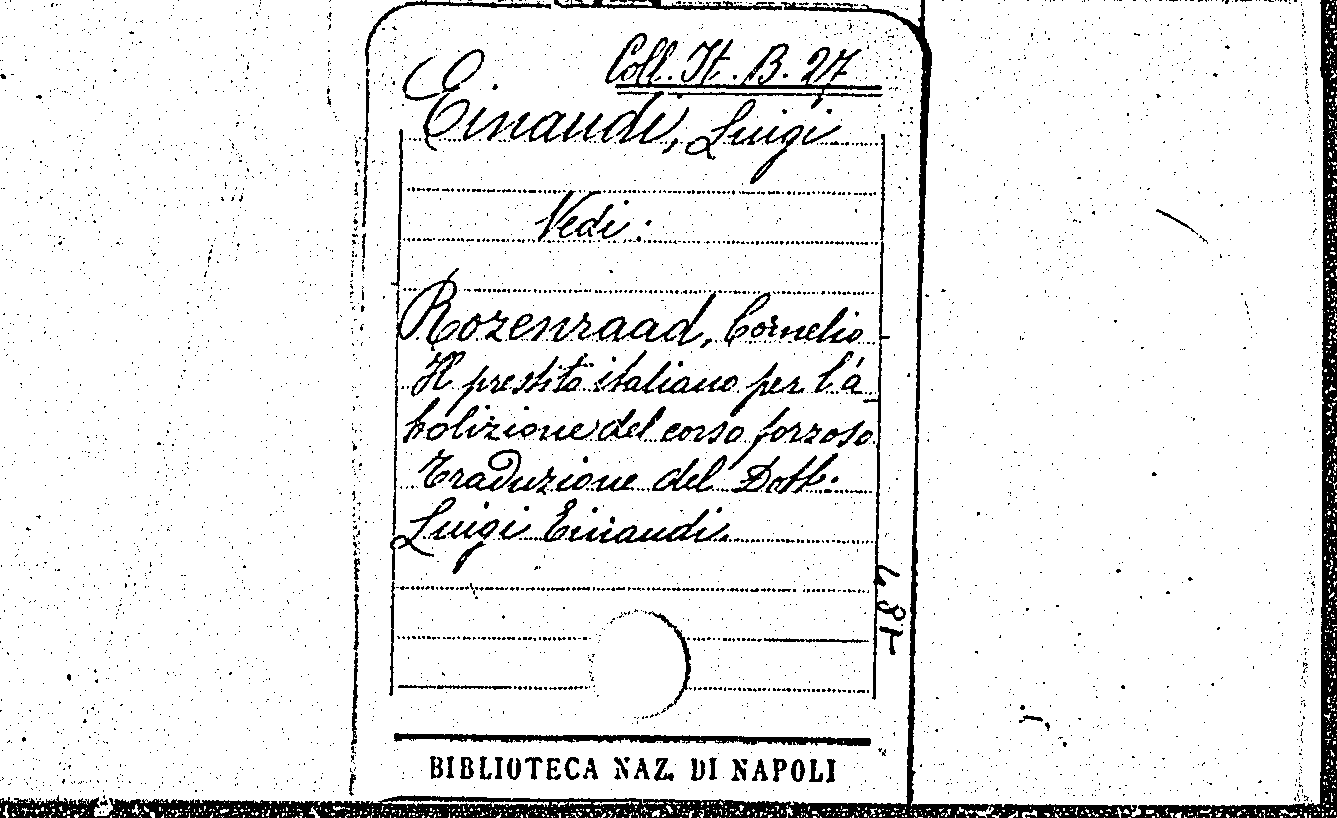 Coll. It. B. 27
Einaudi, Luigi
Vedi:
Rozenraad, Cornelio
Il prestito italiano per l'a_
bolizione del corso forzoso
Traduzione del Dott.
Luigi Einaudi.
BIBLIOTECA NAZ. DI NAPOLI